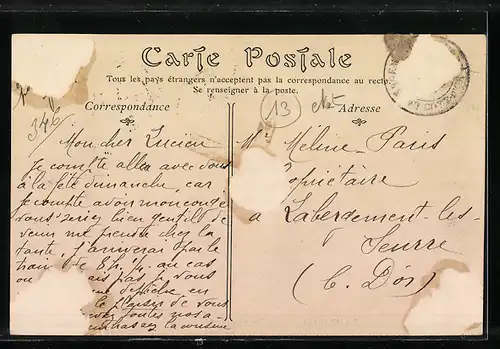 Carte Postale
Tous les pays étrangers n'acceptent pas la correspondance au recto.
Se renseigner à la poste.
Correspondance
Adresse
13
346
Mon cher Lucien
je compte aller avec vous
à la fête dimanche, car
je compte avoir mon congé
vous seriez bien gentil de
venir me prendre chez la
tante, j'arriverai par le
train de 8h ¼ au cas
ou pas je vous
en
le plaisir de vous
toutes nos
la cousine
Mr Méline Paris
opriétaire
à Labergement-les-
Seurre
(C. D'or)